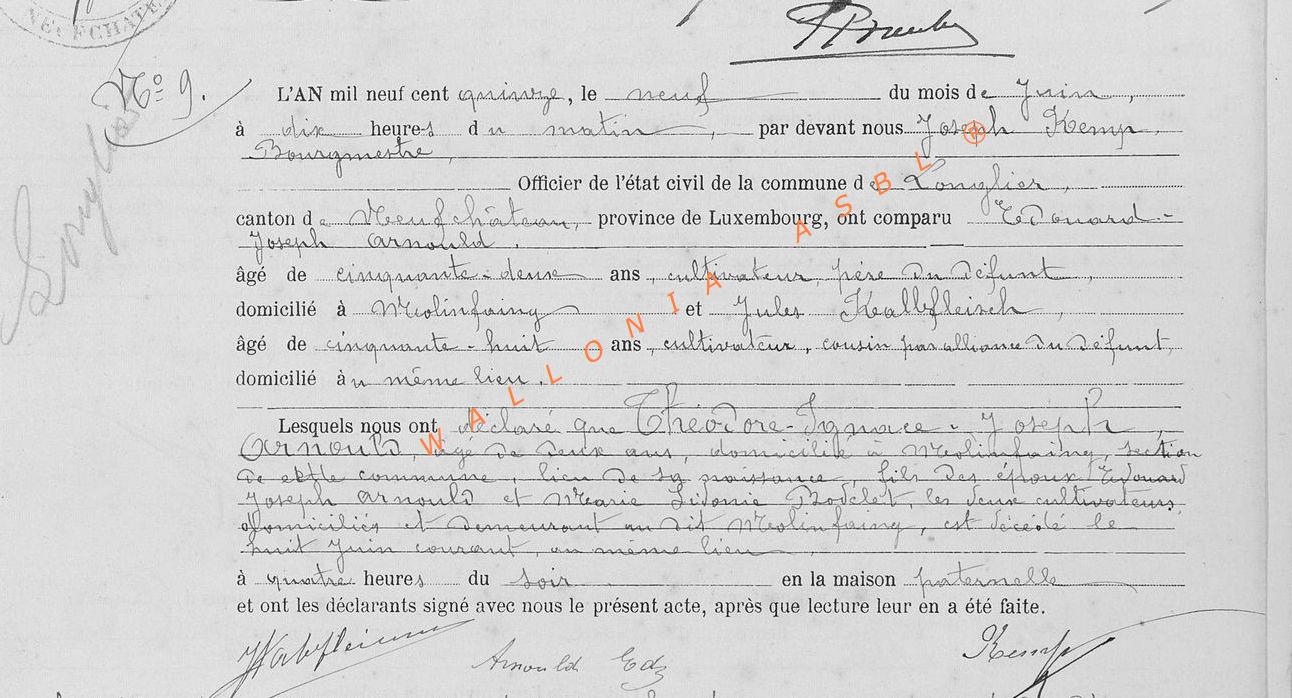 NEUFCHATE
N° 9.
Longlier
L'AN mil neuf cent quinze, le neuf du mois de Juin,
à dix heures du matin, par devant nous Joseph Kemp,
Bourgmestre,
Officier de l'état civil de la commune de Longlier,
canton de Neufchâteau, province de Luxembourg, ont comparu Edouard-
Joseph Arnould,
âgé de cinquante-deux ans, cultivateur, père du défunt,
domicilié à Molinfaing et Jules Kalbfleisch,
âgé de cinquante-huit ans, cultivateur, cousin par alliance du défunt,
domicilié au même lieu.
Lesquels nous ont déclaré que Théodore-Ignace-Joseph
Arnould, âgé de deux ans, domicilié à Molinfaing, section
de cette commune, lieu de sa naissance, fils des époux Edouard
Joseph Arnould et Marie Sidonie Bodelet, les deux cultivateurs,
domiciliés et demeurant au dit Molinfaing, est décédé le
huit Juin courant, au même lieu,
à quatre heures du soir en la maison paternelle
et ont les déclarants signé avec nous le présent acte, après que lecture leur en a été faite.
Arnould Ed
Kemp
WALLONIA ASBL ®